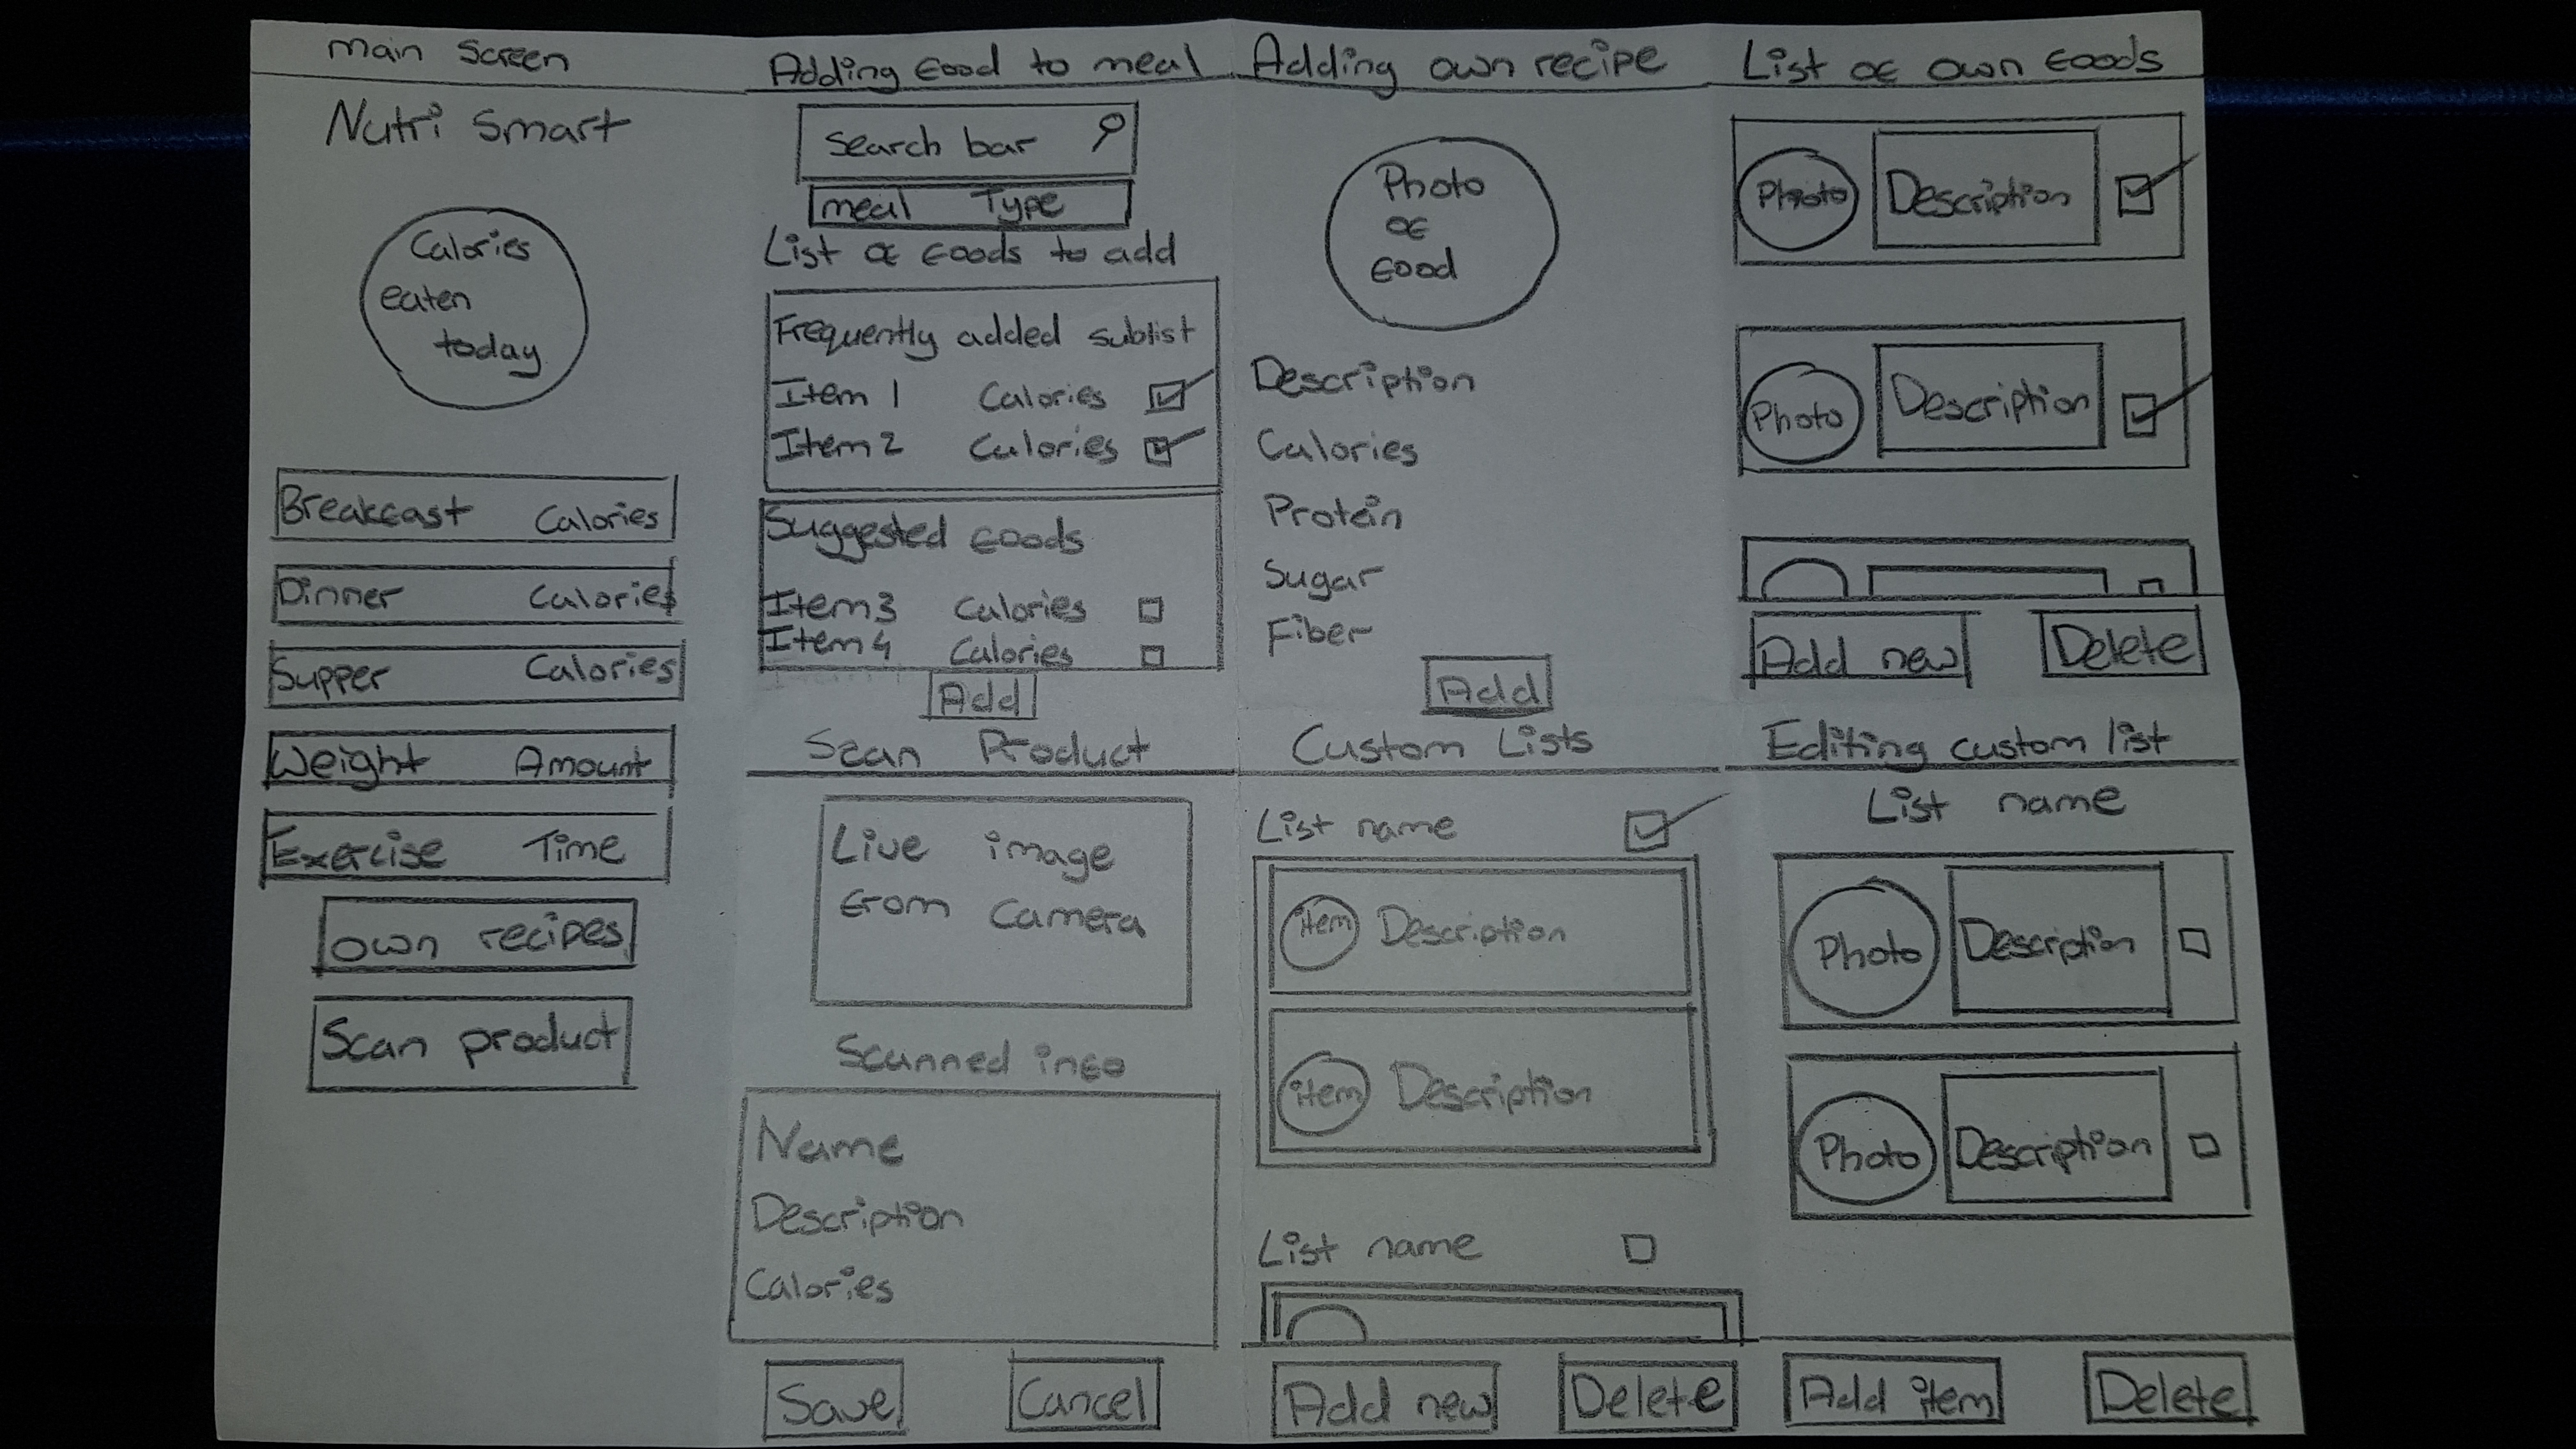 Main Screen
Nutri Smart
Calories
eaten
today
Breakfast Calories
Dinner Calories
Supper Calories
Weight Amount
Exercise Time
Own recipes
Scan product
Adding food to meal
Search bar
Meal Type
List of foods to add
Frequently added sublist
Item 1 Calories
Item 2 Calories
Suggested foods
Item 3 Calories
Item 4 Calories
Add
Scan Product
Live image
from camera
Scanned info
Name
Description
Calories
Save Cancel
Adding own recipe
Photo
of
food
Description
Calories
Protein
Sugar
Fiber
Add
Custom Lists
List name
item Description
item Description
List name
Add new Delete
List of own foods
Photo Description
Photo Description
Add new Delete
Editing custom list
List name
Photo Description
Photo Description
Add item Delete